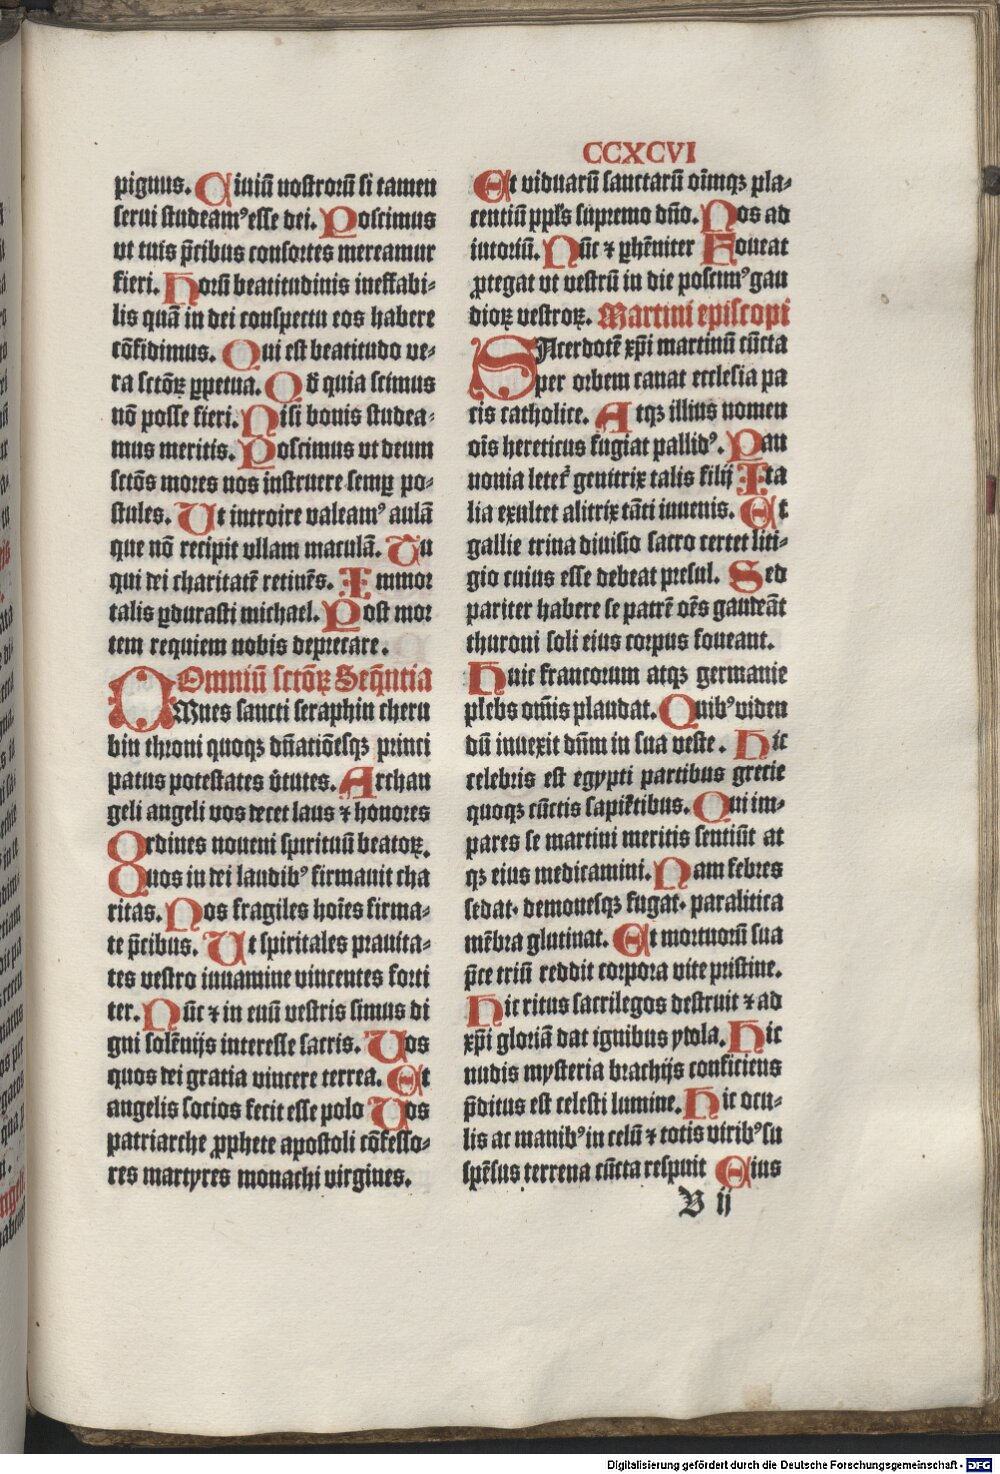 CCXCVI
pignus. Ciuiū nostrorū si tamen
serui studeamꝰ esse dei. Poscimus
vt tuis p̄cibus consortes mereamur
fieri. Horū beatitudinis ineffabi⸗
lis quā in dei conspectu eos habere
cōfidimus. Qui est beatitudo ve⸗
ra sctōꝝ ꝑpetua. Qđ quia scimus
nō posse fieri. Nisi bonis studea⸗
mus meritis. Poscimus vt deum
sctōs mores nos instruere semꝑ po⸗
stules. Ut introire valeamꝰ aulā
que nō recipit vllam maculā. Tu
qui dei charitatē retinēs. Immor
talis ꝑdurasti michael. Post mor
tem requiem nobis deprecare.
Omniū sctōꝝ Seq̄ntia
OMnes sancti seraphin cheru
bin throni quoqꝫ dn̄atiōesqꝫ princi
patus potestates v̓tutes. Archan
geli angeli vos decet laus ⁊ honores
Ordines noueni spirituū beatoꝝ.
Quos in dei laudibꝰ firmauit cha
ritas. Nos fragiles hoīes firma⸗
te p̄cibus. Ut spiritales prauita⸗
tes vestro iuuamine vincentes forti
ter. Nūc ⁊ in euū vestris simus di
gni solēnijs interesse sacris. Uos
quos dei gratia vincere terrea. Et
angelis socios fecit esse polo Uos
patriarche ꝓphete apostoli cōfesso⸗
res martyres monachi virgines.
Et viduarū sanctarū oīmqꝫ pla⸗
centiū ppl̓s supremo dn̄o. Nos ad
iutoriū. Nūc ⁊ ꝑhēniter Foueat
ꝓtegat vt vestrū in die poscimꝰ gau
dioꝝ vestroꝝ. Martini episcopi
SAcerdotē xp̄i martinū cūcta
per orbem canat ecclesia pa
cis catholice. Atqꝫ illius nomen
oīs hereticus fugiat pallidꝰ. Pan
nonia letet᷑ genitrix talis filij Ita
lia exultet alitrix tāti iuuenis. Et
gallie trina diuisio sacro certet liti⸗
gio cuius esse debeat presul. Sed
pariter habere se patrē oēs gaudeāt
thuroni soli eius corpus foueant.
Huic francorum atqꝫ germanie
plebs om̄is plaudat. Quibꝰ viden
dū inuexit dn̄m in sua veste. Hic
celebris est egypti partibus grecie
quoqꝫ cūctis sapiētibus. Qui im⸗
pares se martini meritis sentiūt at
qꝫ eius medicamini. Nam febres
sedat. demonesqꝫ fugat. paralitica
mēbra glutinat. Et mortuorū sua
p̄ce triū reddit corpora vite pristine.
Hic ritus sacrilegos destruit ⁊ ad
xp̄i gloriā dat ignibus ydola. Hic
nudis mysteria brachijs conficiens
p̄ditus est celesti lumine. Hic ocu⸗
lis ac manibꝰ in celū ⁊ totis viribꝰ su
spēsus terrena cūcta respuit Eius
B ij
Digitalisierung gefördert durch die Deutsche Forschungsgemeinschaft - DFG